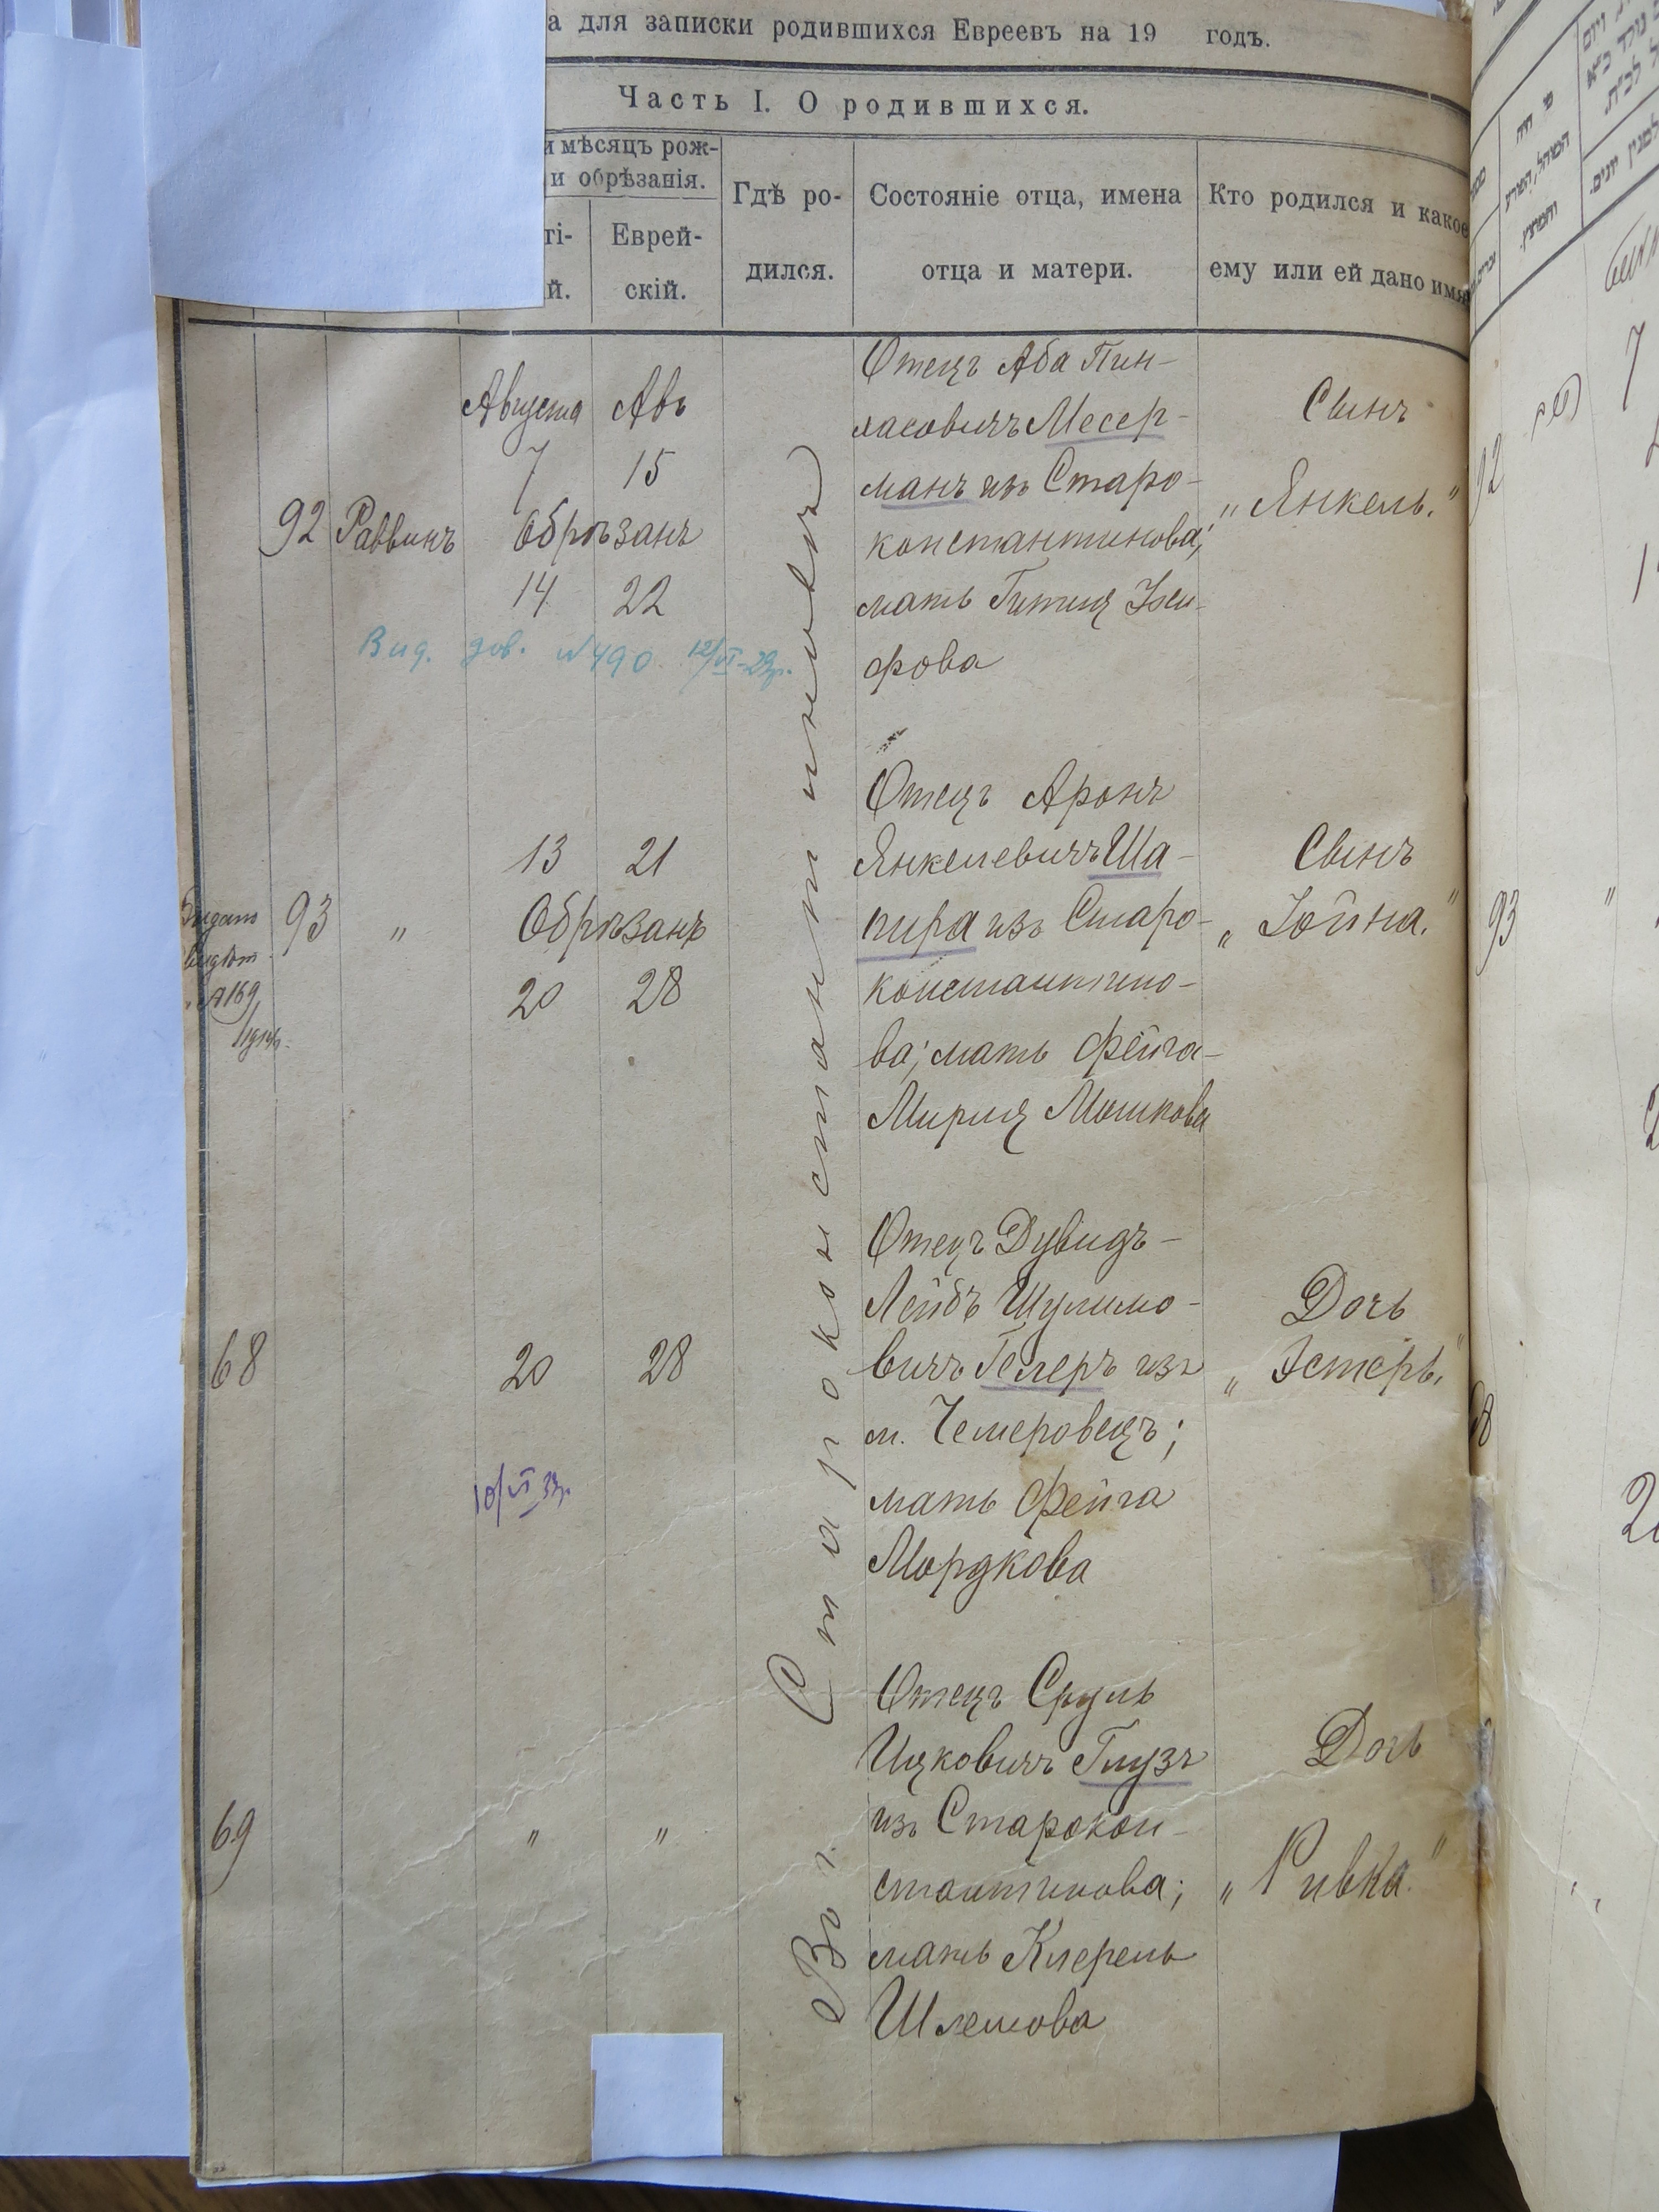 а для записки родившихся Евреевъ на 19 годъ.
Часть I. О родившихся.
и мѣсяцъ рож-
и обрѣзанія.
ті-
й.
Еврей-
скій.
Гдѣ ро-
дился.
Состояніе отца, имена
отца и матери.
Кто родился и какое
ему или ей дано имя
Въ г. Старокостантиновѣ
92 Раввинъ
Августа Авъ
7 15
Обрѣзанъ
14 22
Отецъ Аба Пин-
хасовичъ Месер-
манъ изъ Старо-
константинова;
мать Гитля
фова
Сынъ
„Янкель."
Вид. дов. №490. 12/VI-29р.
93 „
13 21
Обрѣзанъ
20 28
Отецъ Аронъ
Янкелевичъ Ша-
пира изъ Старо-
константино-
ва; мать Фейга-
Миря Мошкова
Сынъ
„Іойна."
№169
68
20 28
Отецъ Дувидъ-
Лейбъ Шулимо-
вичъ Гелеръ изъ
м. Чемеровецъ;
мать Фейга
Мордкова
Дочь
„Эстеръ."
10/VI 33р.
69
„ „
Отецъ Сруль
Ицковичъ Глузъ
изъ Старокон-
стантинова;
мать
Шлемова
Дочь
„Ривка."
92
93